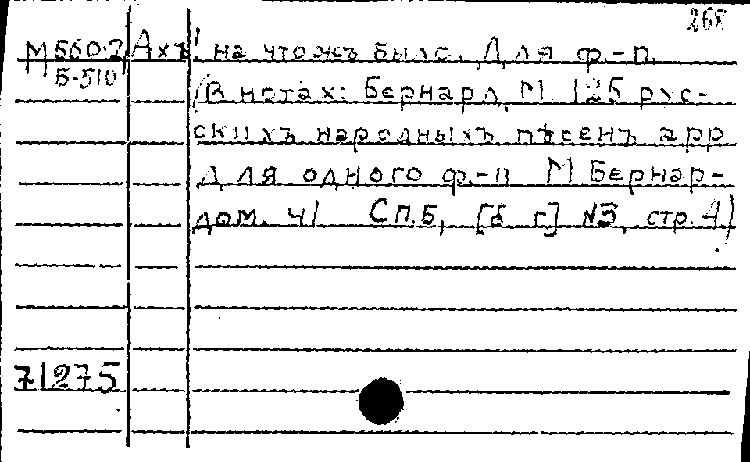 268
М560.2 Ахъ! на чтожъ было. Для ф.-п.
Б-510 (В нотах: Бернард, М 125 рус-
скихъ народныхъ пѣсенъ арр
для одного ф.-п М Бернар-
дом. Ч1 СПБ, [б г] №3, стр. 4)
71275